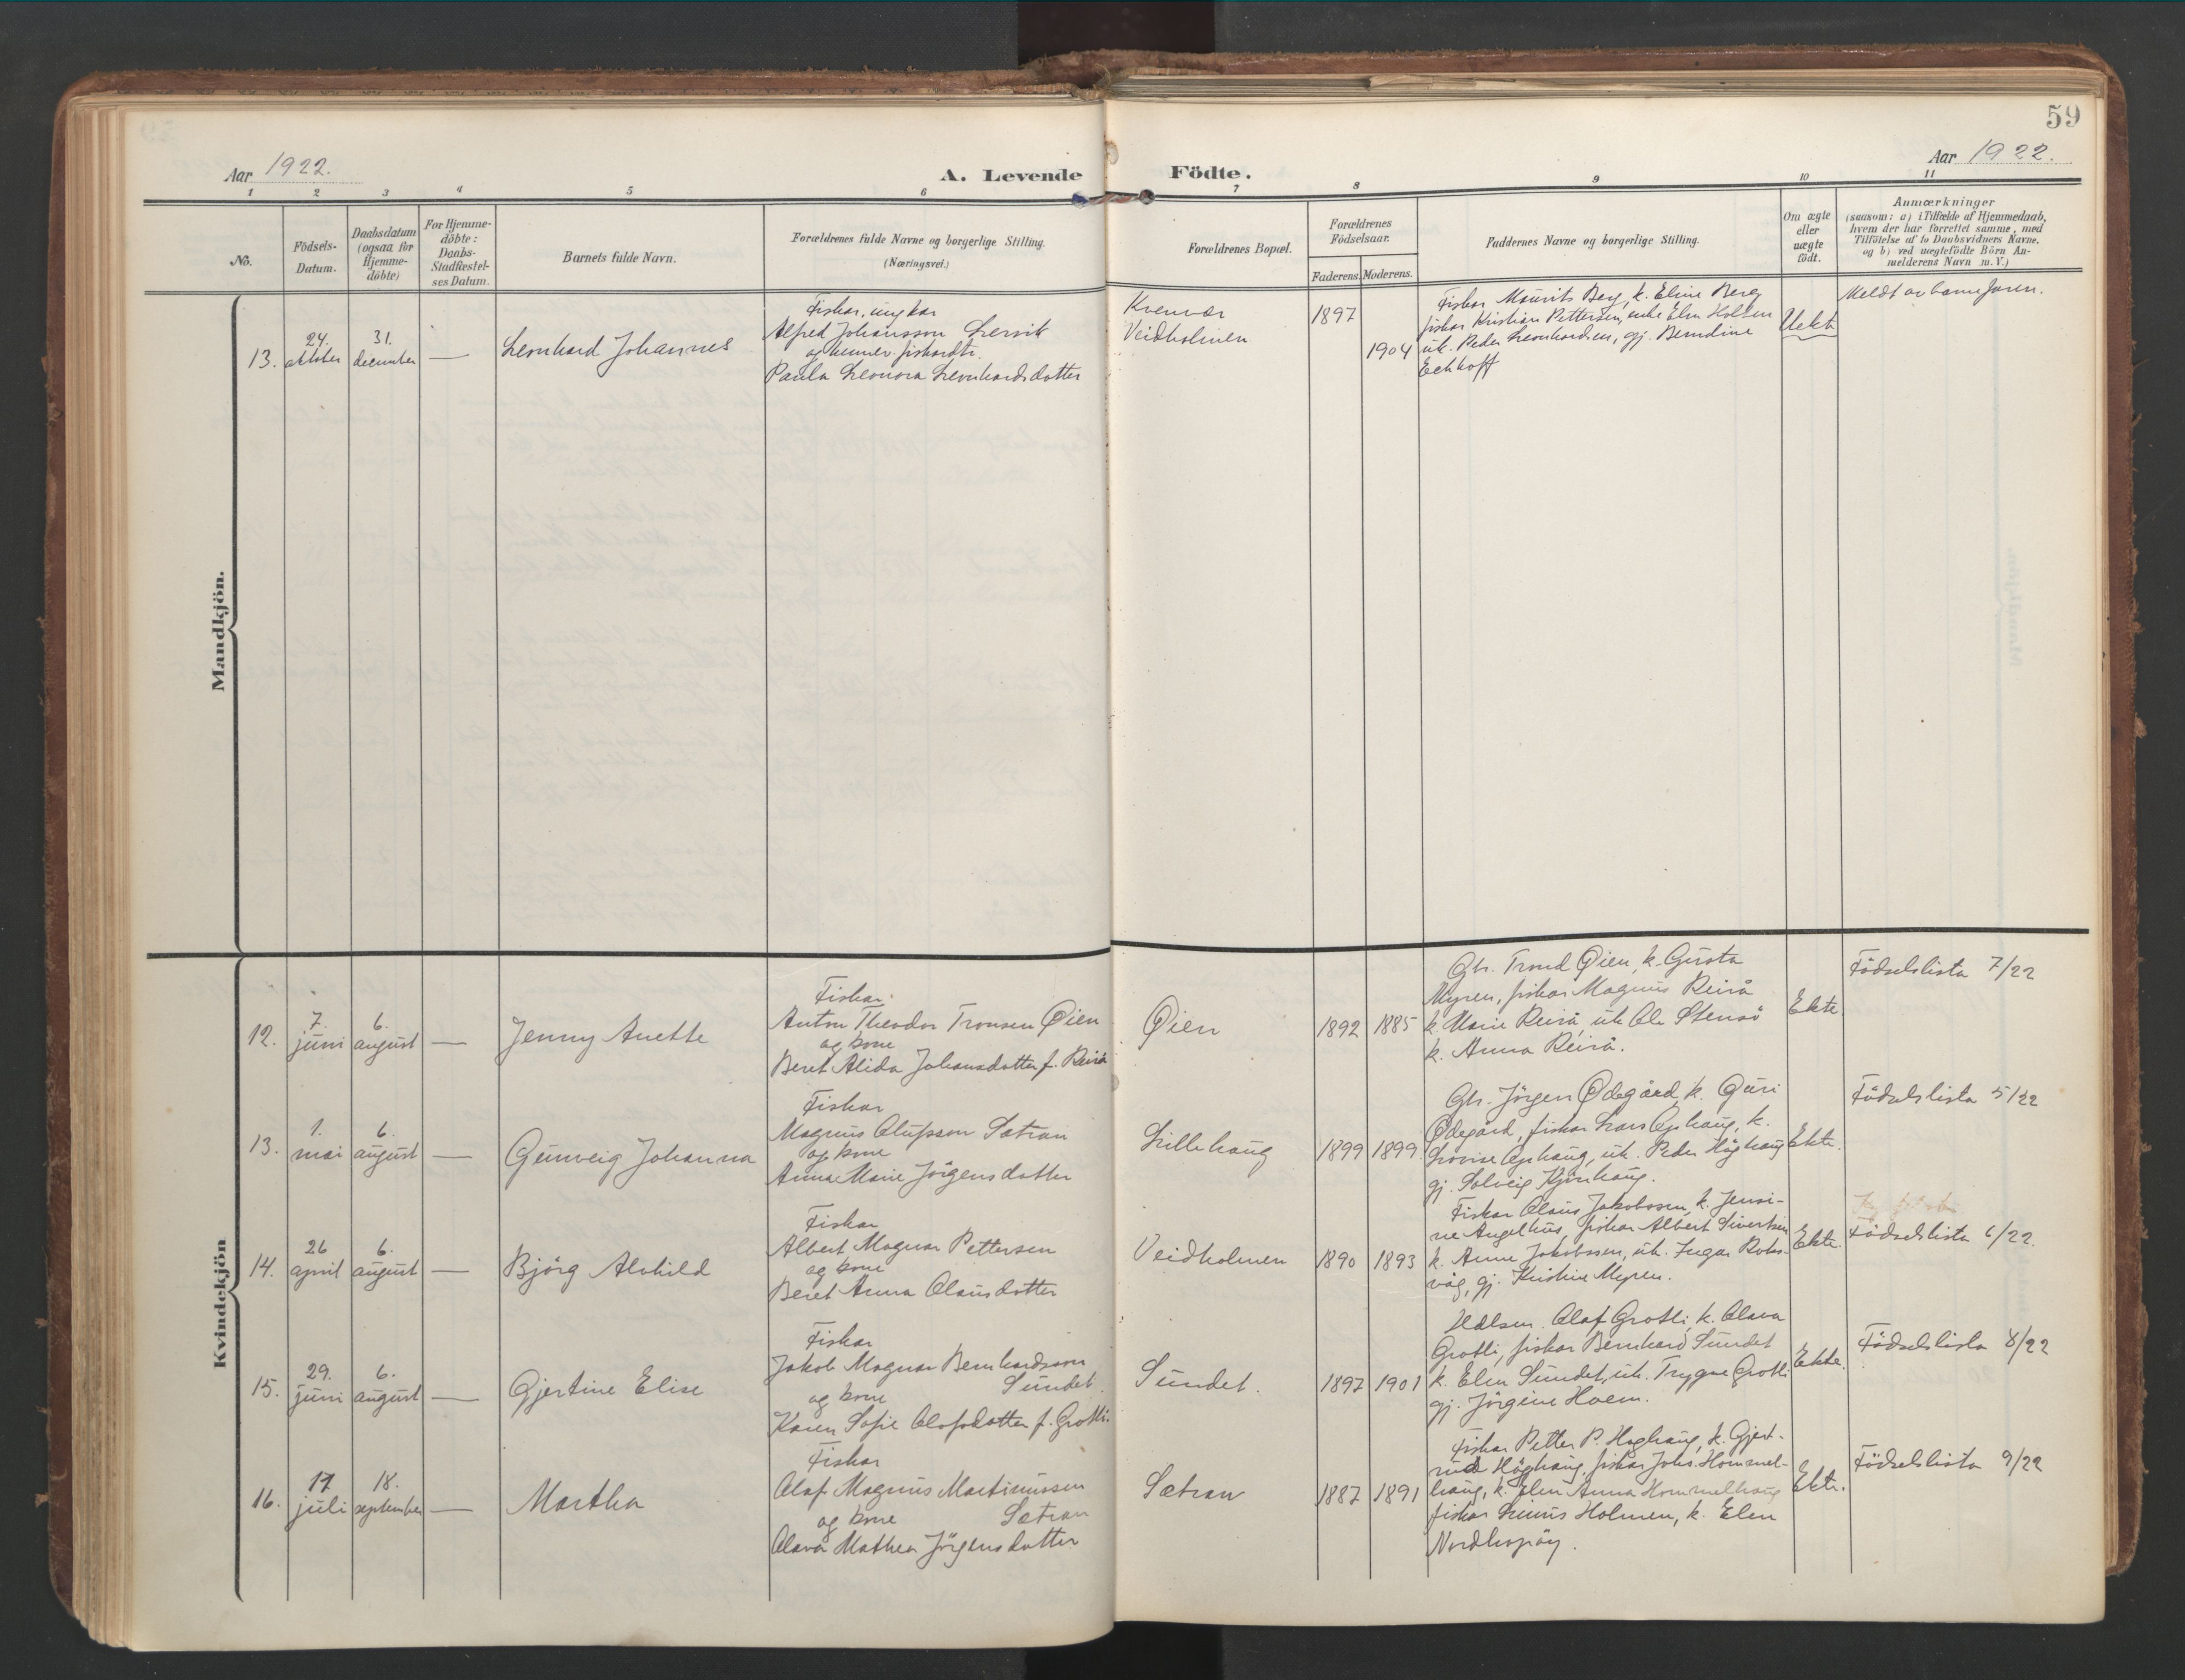 59
Aar 1922.
A. Levende Födte.
Aar 1922.
1 2 3 4 5 6 7 8 9 10 11
No.
Födsels-Datum.
Daabsdatum (ogsaa for Hjemme-döbte)
For Hjemme-döbte: Daabs-Stadfæstel-ses Datum.
Barnets fulde Navn.
Forældrenes fulde Navne og borgerlige Stilling.
(Næringsvei.)
Forældrenes Bopæl.
Forældrenes Födselsaar.
Faderens. Moderens.
Faddernes Navne og borgerlige Stilling.
Om ægte eller uægte födt.
Anmærkninger
(saasom: a) i Tilfælde af Hjemmedaab,
hvem der har forrettet samme, med
Tilföielse af to Daabsvidners Navne.
og b) ved uægtefödte Börn An-
melderens Navn m. V.)
Mandkjön.
13.
24. oktober
31. december
—
Leonhard Johannes
Fiskar, ungkar
Alfred Johansson Lervik
og
Paula Leonora Leonhardsdotter
Kvenvær
Veidholmen
1897
1904
Fiskar Maurits Berg, k. Eline Berg
fiskar Kristian Pettersen, enke Elen Holten
uk. Peder Leonhardsen, gj. Berndine
Eckhoff
Uekte
Meldt av barnefaren.
Kvindekjön
12.
7. juni
6. august
—
Jenny Anette
Fiskar
Anton Theodor Tronsen Øien
og kone
Beret Alida Johansdotter f. Reirå
Øien
1892
1885
Gbr. Trond Øien, k. Gusta
Myren, fiskar Magnus Reirå
k. Marie Reirå, uk. Ole Stensö
k. Anna Reirå.
Ekte
Födselslista 7/22
13.
1. mai
6. august
—
Gunveig Johanna
Fiskar
Magnus Olufsson Sætran
og kone
Anna Marie Jörgensdotter
Lillehaug
1899
1899
Gbr. Jörgen Ødegård, k. Guri
Ødegård, fiskar Lars Ophaug, k.
Lovise Ophaug, uk. Peder Höghaug
gj. Solveig Kjönhaug.
Ekte.
Födselslista 5/22
14.
26 april
6. august
—
Björg Alvhild
Fiskar
Albert Magnar Pettersen
og kone
Beret Anna Olausdotter
Veidholmen
1890
1893
Fiskar Olaus Jakobssen, k. Jensi-
ne Angelhus, fiskar Albert Sivertsen
k. Anne Jakobssen, uk. Ingar Roks-
våg, gj. Kristine Myren.
Ekte.
Födselslista 6/22.
15.
29. juni
6. august
—
Gjertine Elise
Fiskar
Jakob Magnar Bernhardsson
og kone Sundet.
Karen Sofie Olafsdotter f. Grotli.
Sundet.
1897
1901
Olaf Grotli, k. Olava
Grotli, fiskar Bernhard Sundet
k. Elen Sundet, uk. Trygve Grotli
gj. Jörgine Hoem.
Ekte.
Födselslista 8/22
16.
17 juli
18. september
—
Martha
Fiskar
Olaf Magnus Martinussen
og kone Sætran
Olava Mathea Jörgensdotter
Sætran
1887
1891
Fiskar Petter P. Höghaug, k. Gjert-
rud Höghaug, fiskar Johs. Hommel-
haug, k. Elen Anna Hommelhaug
fiskar Linus Holmen, k. Elen
Nordhopöy.
Ekte.
Födselslista 9/22